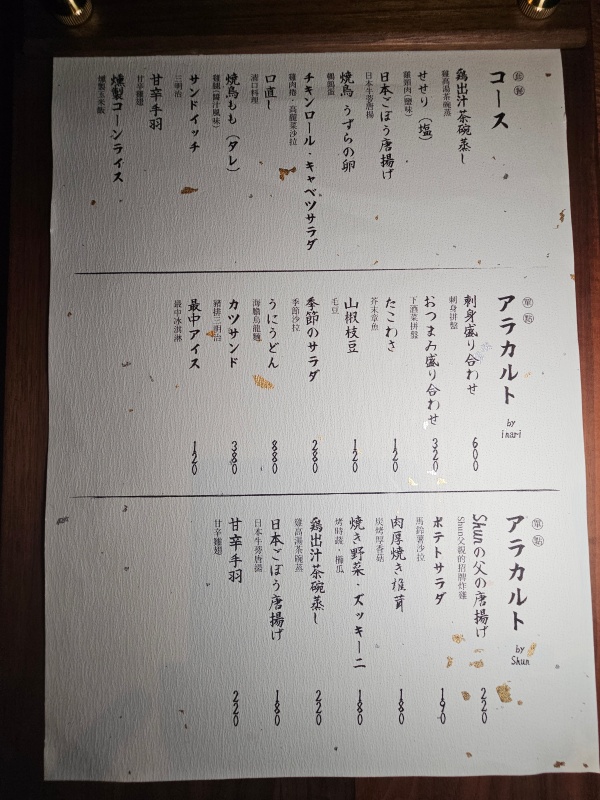 套餐
コース
鶏出汁茶碗蒸し
雞高湯茶碗蒸
せせり（塩）
雞頸肉(鹽味)
日本ごぼう唐揚げ
日本牛蒡唐揚
焼鳥 うずらの卵
鵪鶉蛋
チキンロール・キャベツサラダ
雞肉捲・高麗菜沙拉
口直し
清口料理
焼鳥もも（タレ）
雞腿(醬汁風味)
サンドイッチ
三明治
甘辛手羽
甘辛雞翅
燻製コーンライス
燻製玉米飯
單點
アラカルト
by
inari
刺身盛り合わせ
刺身拼盤
600
おつまみ盛り合わせ
下酒菜拼盤
320
たこわさ
芥末章魚
120
山椒枝豆
毛豆
120
季節のサラダ
季節沙拉
280
うにうどん
海膽烏龍麵
880
カツサンド
豬排三明治
380
最中アイス
最中冰淇淋
120
單點
アラカルト
by
Shun
Shunの父の唐揚げ
Shun父親的招牌炸雞
220
ポテトサラダ
馬鈴薯沙拉
190
肉厚焼き椎茸
炭烤厚香菇
180
焼き野菜・ズッキーニ
烤時蔬・櫛瓜
180
鶏出汁茶碗蒸し
雞高湯茶碗蒸
220
日本ごぼう唐揚げ
日本牛蒡唐揚
180
甘辛手羽
甘辛雞翅
220